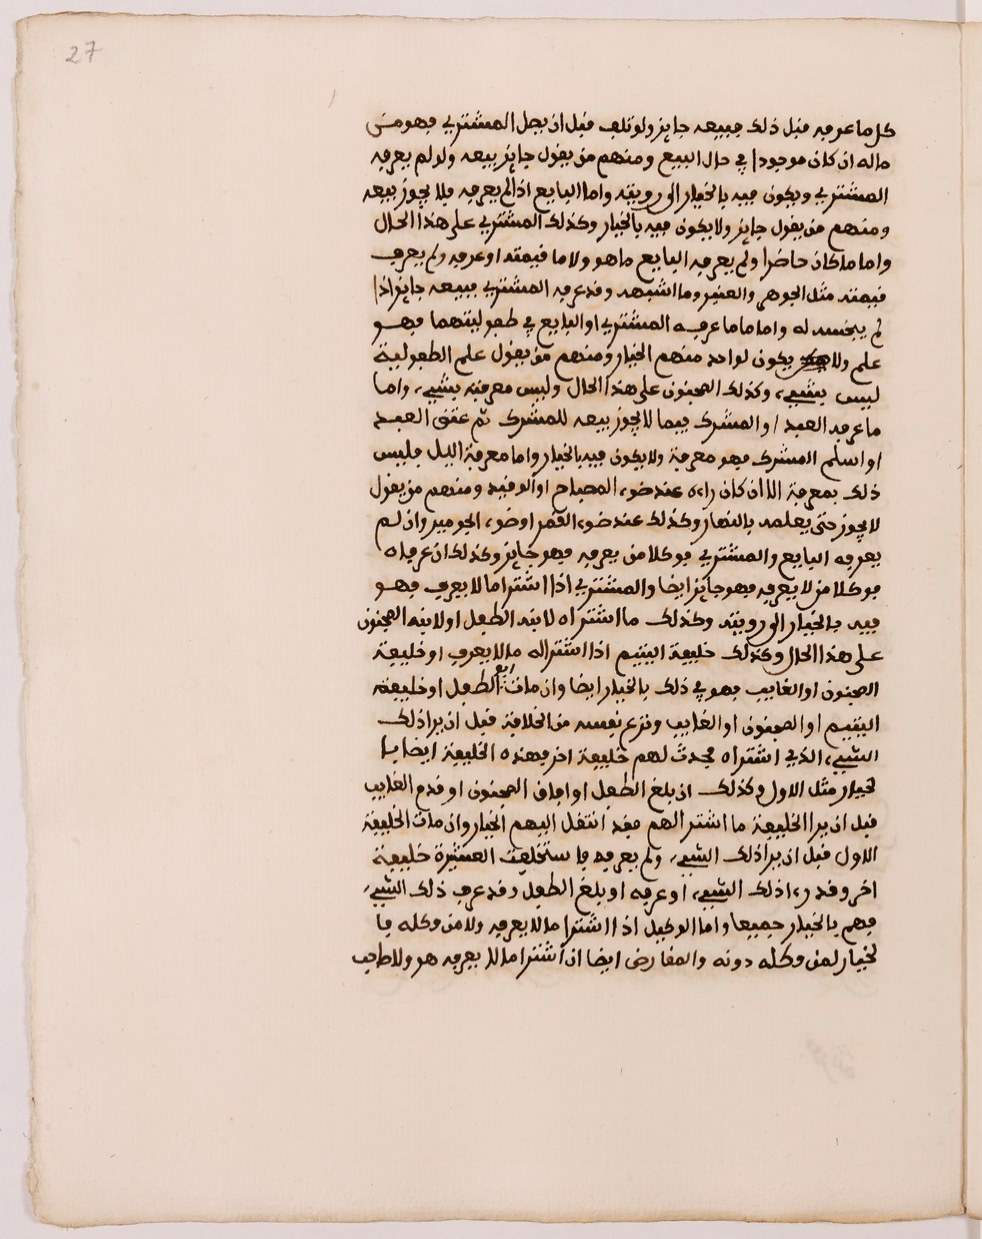 27
كل ما عرفه قبل ذلك فبيعه جايز ولو تلف قبل ان يجل المشتري فهو من
ماله ان كان موجودا في حال البيع ومنهم من يقول جايز بيعه ولو لم يعرفه
المشتري ويكون فيه بالخيار الى رويته واما البايع اذا لم يعرفه فلا يجوز بيعه
ومنهم من يقول جايز ولا يكون فيه بالخيار وكذلك المشتري على هذا الحال
واما ما كان حاضرا ولم يعرفه البايع ما هو ولا ما قيمته او عرفه ولم يعرف
قيمته مثل الجوهر والعنبر وما اشبهه وقد عرفه المشتري فبيعه جايز اذا
لم يبخسه له واما ما ما عرفه المشتري او البايع في طفوليتهما فهو
علم ولا يكون لواحد منهم الخيار ومنهم من يقول علم الطفولية
ليس بشيء، وكذلك المجنون على هذا الحال وليس معرفته بشيء، واما
ما عرفه العبد او المشرك فيما لا يجوز بيعه للمشرك ثم عتق العبد
او اسلم المشرك فهو معرفة ولا يكون فيه بالخيار واما معرفة اليل فليس
ذلك بمعرفة الا ان كان راءه عند ضوء المصباح او الوقيد ومنهم من يقول
لا يجوز حتى يعلمه بالنهار وكذلك عند ضوء القمر او ضوء الجو مير وان لم
يعرفه البايع والمشتري فوكلا من يعرفه فهو جايز وكذلك ان عرفاه
فوكلا من لا يعرفه فهو جايز ايضا والمشتري اذا اشترا ما لا يعرف فهو
فيه بالخيار الى رويته وكذلك ما اشتراه لابنه الطفل او لابنه المجنون
على هذا الحال وكذلك خليفة اليتيم اذا اشترا له ما لا يعرف او خليفة
المجنون او الغايب فهو في ذلك بالخيار ايضا وان مات ابو الطفل او خليفة
اليتيم او المجنون او الغايب ونزع نفسه من الخلافة قبل ان يرا ذلك
الشيء، الذي اشتراه فحدث لهم خليفة اخر فهذه الخليفة ايضا با
لخيار مثل الاول وكذلك ان بلغ الطفل او افاق المجنون او قدم الغايب
قبل ان يرا الخليفة ما اشترا لهم فقد انتقل اليهم الخيار وان مات الخليفة
الاول قبل ان يرا ذلك الشيء، ولم يعرفه فاستخلفت العشيرة خليفة
اخر وقد رءا ذلك الشيء، او عرفه او بلغ الطفل وقد عرف ذلك الشيء،
فهم بالخيار جميعا واما الوكيل اذا اشترا ما لا يعرفه ولا من وكله فا
لخيار لمن وكله دونه والمقارض ايضا ان اشترا ما لا يعرفه هو ولا صاحب